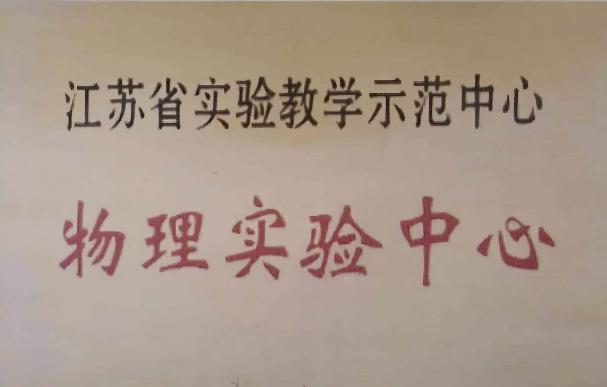 江苏省实验教学示范中心
物理实验中心